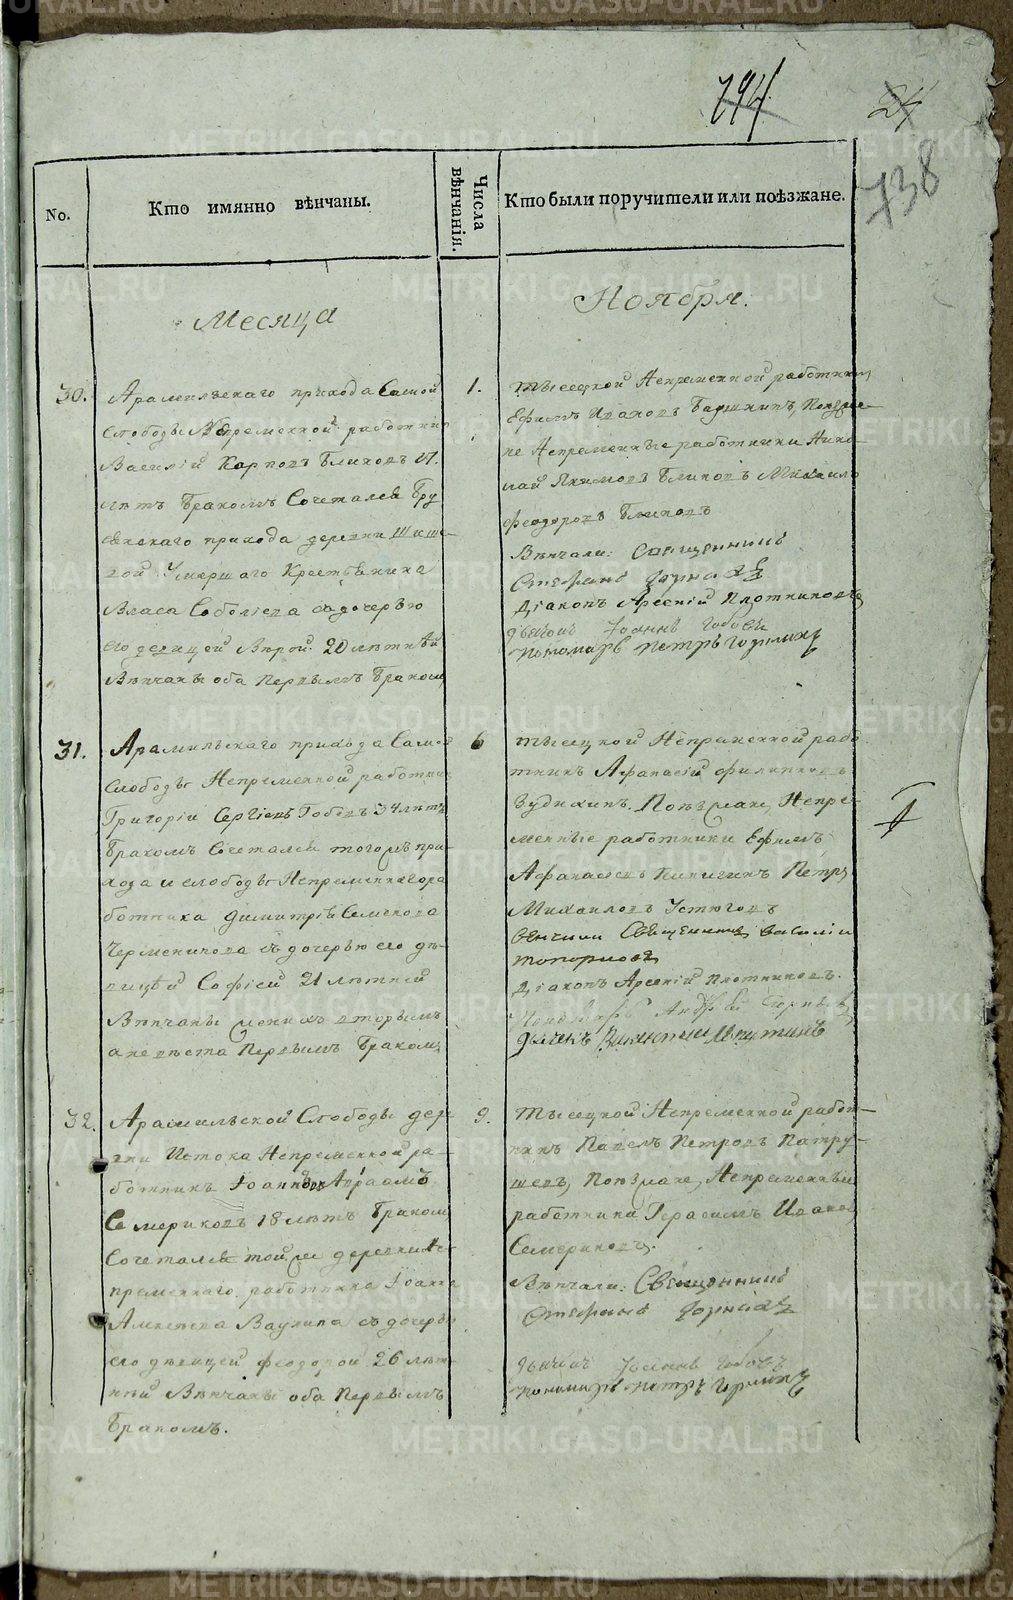 794
24
738
No.
Кто имянно вѣнчаны.
Числа вѣнчанія.
Кто были поручители или поѣзжане.
Месяца
Ноября.
30.
Арамильскаго прихода Самой
слободы Непременной работникъ
Василій Карповъ Блиновъ 17.
лѣтъ бракомъ Сочетался Бру
сянскаго прихода деревни
умершаго Крестьянина
Власа Соболева здочерью
его девицей Вѣрой 20 лѣтнѣй
Вѣнчаны оба Первымъ бракомъ
1.
тысецкой Непременной работникъ
Ефимъ Ивановъ Поезжа-
не Непременные работники Нико
лай Якимовъ Блиновъ Михаило
Феодоровъ Блиновъ
Вѣнчали: Священникъ
Стефанъ
Діаконъ Арсеній Плотниковъ
дьячокъ Іоаннъ
пономарь Петръ
31.
Арамильскаго прихода Самой
слободы Непременной работникъ
Григорій Сергіевъ 34 лѣтъ
бракомъ Сочетался тогожъ при-
хода и слободы Непременнагора
ботника Димитрія Семенова
съ дочерью его дѣ-
вицѣй Софіей 21 лѣтней
Вѣнчаны женихъ вторымъ
аневѣста Первымъ бракомъ
6
тысецкой Непременной рабо
тникъ Афанасій Филипповъ
Зудихинъ. Поѣзжане, Непре-
менные работники Ефимъ
Афанасьевъ Кинигинъ Петръ
Михаиловъ Устюговъ
венчали Священникъ василіи
топорковъ
Діаконъ Арсеній Плотниковъ.
Пономарь Андрей
дьячекъ
32.
Арамильской Слободы дер
вни Истока Непременной ра-
ботникъ Іоаннъ
Семериковъ 18 лѣтъ бракомъ
Сочетался тойже деревни Не-
пременнаго работника Іоанна
Алексѣева Ваулина съ дочерью
его дѣвицей Феодорой 26 лѣт-
ней Вѣнчаны оба Первымъ
бракомъ.
9.
Тысецкой Непременной работ-
никъ Павелъ Петровъ Патру-
шевъ, Поѣзжане, Непременныи
работники Герасимъ Ивановъ
Семериковъ.
Вѣнчали: Священникъ
Стефанъ
дьячокъ Іоаннъ
пономарь петръ
METRIKI.GASO-URAL.RU